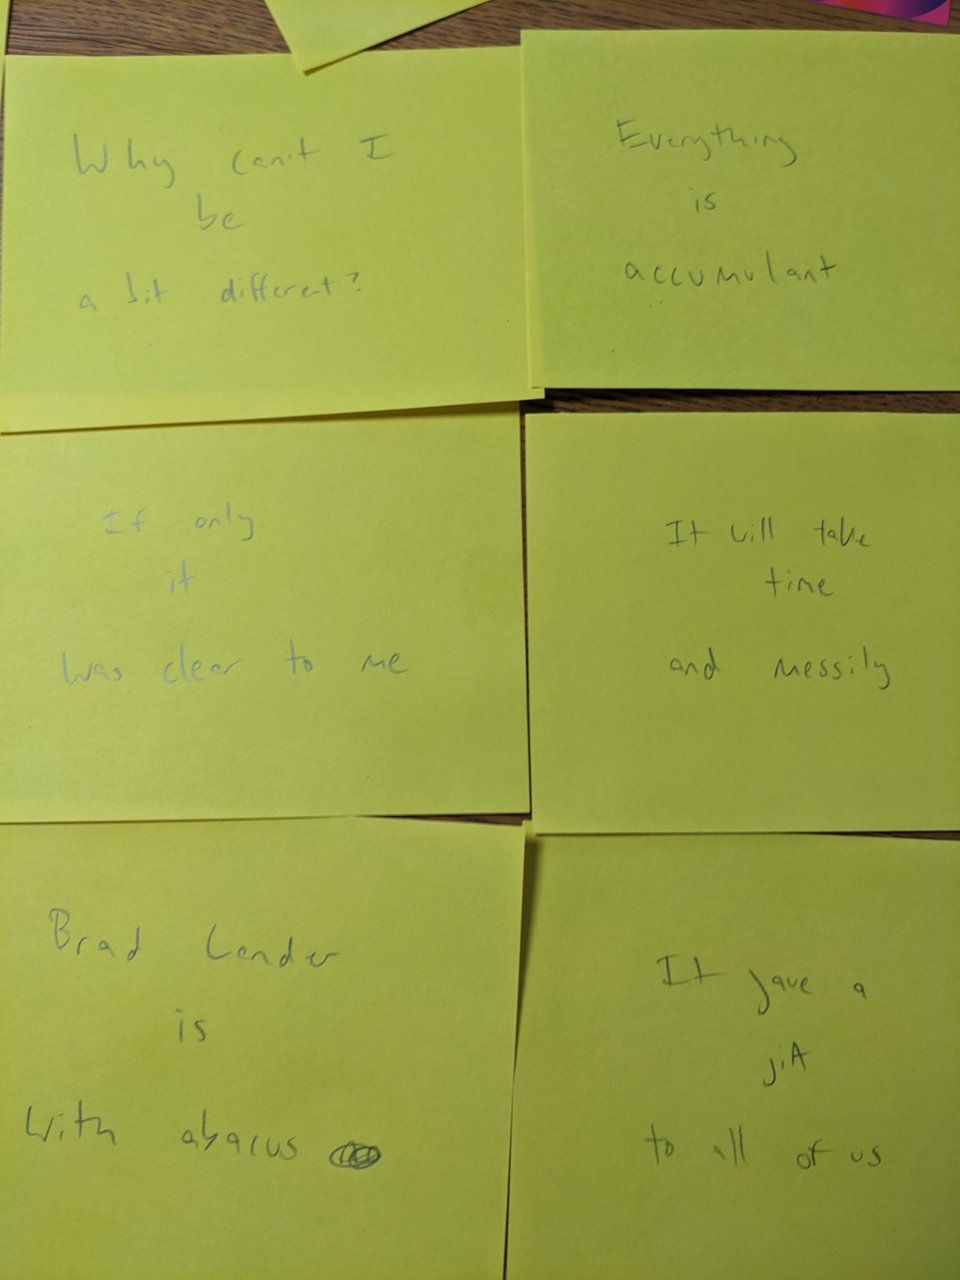 Why can't I
be
a bit different?
Everything
is
accumulant
If only
it
was clear to me
It will take
time
and messily
Brad Lander
is
with abacus
It gave a
gift
to all of us